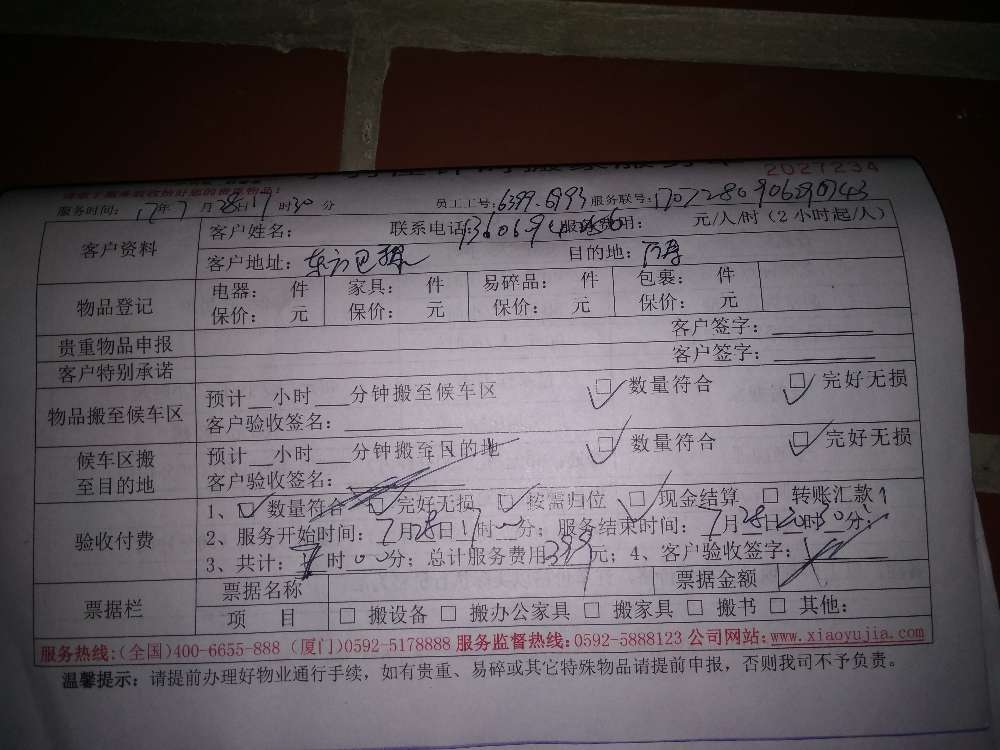 2027234
服务时间：17年7月28日17时30分 员工工号：6399.6993 服务联号：
客户资料 客户姓名： 联系电话： 服务费用： 元/人/时（2小时起/人）
客户地址：东方巴黎 目的地：
物品登记 电器： 件 家具： 件 易碎品： 件 包裹： 件
保价： 元 保价： 元 保价： 元 保价： 元
贵重物品申报 客户签字：
客户特别承诺 客户签字：
物品搬至候车区 预计__小时___分钟搬至候车区 ☑ 数量符合 ☑ 完好无损
客户验收签名：
候车区搬至目的地 预计__小时___分钟搬至目的地 ☑ 数量符合 ☑ 完好无损
客户验收签名：
验收付费 1、☑ 数量符合 ☑ 完好无损 ☑ 按需归位 ☑ 现金结算 ☐ 转账汇款
2、服务开始时间：7月28日17时00分；服务结束时间：7月28日20时30分；
3、共计： 时00分；总计服务费用399元；4、客户验收签字：
票据栏 票据名称 票据金额
项 目 ☐ 搬设备 ☐ 搬办公家具 ☐ 搬家具 ☐ 搬书 ☐ 其他：
服务热线：(全国)400-6655-888 (厦门)0592-5178888 服务监督热线：0592-5888123 公司网站：www.xiaoyujia.com
温馨提示：请提前办理好物业通行手续，如有贵重、易碎或其它特殊物品请提前申报，否则我司不予负责。